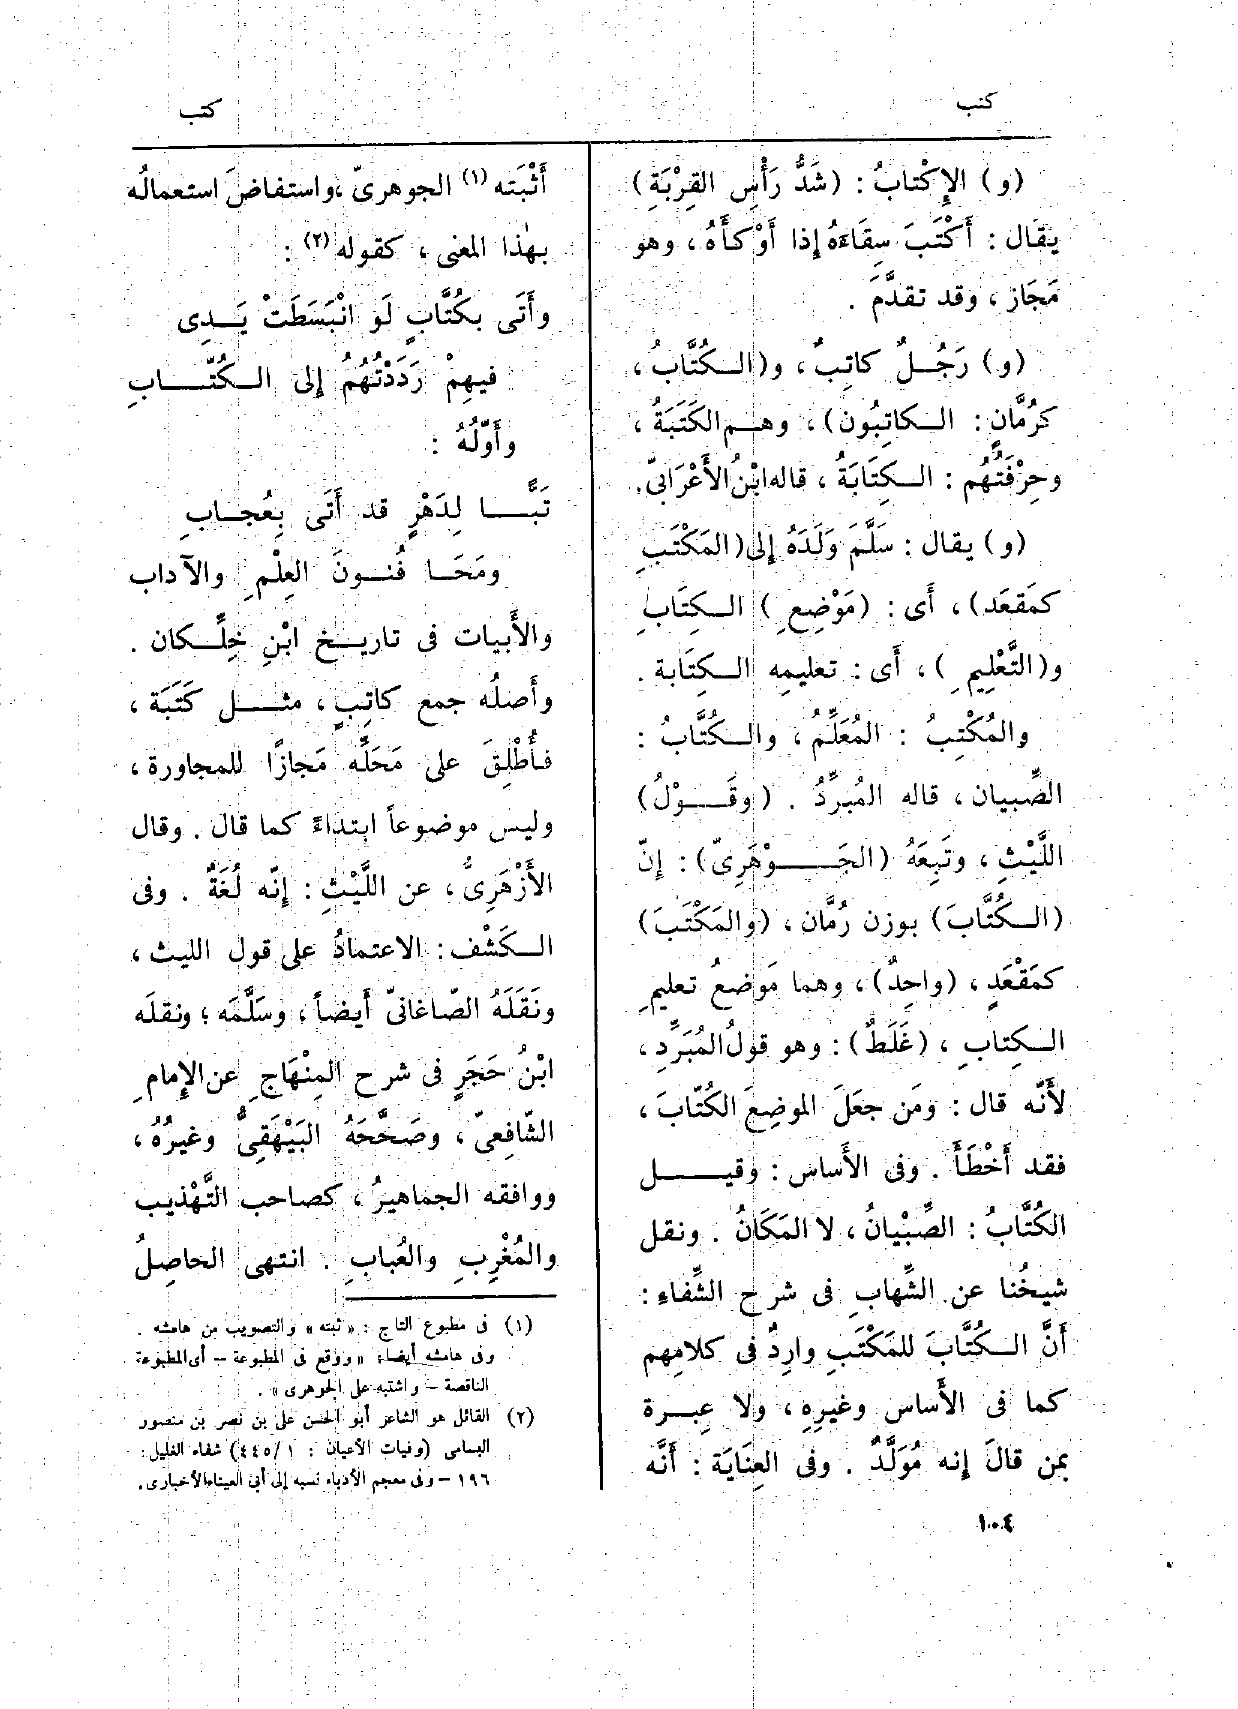 كتب
كتب
(و) الإِكْتابُ : (شَدُّ رَأْسِ القِرْبَةِ)
يقال : أَكْتَبَ سِقَاءَهُ إذا أَوْكأَهُ ، وهو
مَجَاز ، وقد تقدَّمَ .
(و) رَجُلٌ كاتِبٌ ، و(الكُتَّابُ ،
كرُمَّانٍ : الكاتِبُون) ، وهم الكَتَبَةُ ،
وحِرْفَتُهُم : الكِتَابَةُ ، قاله ابْنُ الأَعْرَابىّ .
(و) يقال : سَلَّمَ وَلَدَهُ إلى (المَكْتَبِ
كمَقعَد) ، أَى : (مَوْضِعِ) الكِتَابِ
و(التَّعْلِيمِ) ، أَى : تعليمِه الكِتَابة .
والمُكْتِبُ : المُعَلِّمُ ، والكُتَّابُ :
الصِّبيان ، قاله المُبرِّدُ . (وقَوْلُ)
اللَّيْثِ ، وتَبِعَهُ (الجَوْهَرِىّ) : إنّ
(الكُتَّابَ) بوزن رُمَّان ، (والمَكْتَبَ)
كمَقْعَدٍ ، (واحِدٌ) ، وهما مَوْضعُ تعليمِ
الكِتابِ ، (غَلَطٌ) : وهو قولُ المُبَرِّدِ ،
لأَنَّه قال : ومَن جعَلَ الموضِعَ الكُتَّابَ ،
فقد أَخْطَأَ . وفى الأَساس : وقيل
الكُتَّابُ : الصِّبْيانُ ، لا المَكَانُ . ونقل
شيخُنا عن الشِّهابِ فى شرح الشِّفاءِ :
أَنَّ الكُتَّابَ للمَكْتَبِ وارِدٌ فى كلامِهم
كما فى الأَساس وغيرِهِ ، ولا عِبرة
بمن قالَ إنه مُوَلَّدٌ . وفى العِنَايَة : أَنَّه
أَثْبَته (١) الجوهرىّ ، واستفاضَ استعمالُه
بهٰذا المعنى ، كقوله (٢) :
وأَتَى بكُتَّابٍ لَو انْبَسَطَتْ يَدِى
فيهِمْ رَدَدْتُهُمُ إلى الكُتّابِ
وأَوّلُهُ :
تَبًّا لِدَهْرٍ قد أَتَى بِعُجابِ
ومَحَا فُنونَ العِلْمِ والآداب
والأَبيات فى تاريخ ابْنِ خِلِّكان .
وأَصلُه جمع كاتِبٍ ، مثل كَتَبَة ،
فأُطْلِقَ على مَحَلِّه مَجازًا للمجاورة ،
وليس موضوعاً ابتداءً كما قال . وقال
الأَزْهَرِىُّ ، عن اللَّيْثِ : إنّه لُغَةٌ . وفى
الكَشْف : الاعتمادُ على قول الليث ،
ونَقَلَهُ الصّاغانىّ أَيضاً ، وسَلَّمَه ؛ ونقلَه
ابْنُ حَجَرٍ فى شرح المِنْهَاجِ عن الإمامِ
الشّافِعىّ ، وصَحَّحَهُ البَيْهَقِىُّ وغيرُهُ ،
ووافقه الجماهيرُ ، كصاحب التَّهْذيب
والمُغْرِبِ والعُبابِ . انتهى الحاصِلُ
(١) فى مطبوع التاج : « ثبته » والتصويب من هامشه .
وفى هامشه أيضاء « ووقع فى المطبوعة – أى المطبوعة
الناقصة – واشتبه على الجوهرى » .
(٢) القائل هو الشاعر أبو الحسن على بن نصر بن منصور
البسامى (وفيات الأعيان : ٤٤٥/١) شفاء الغليل :
١٩٦ – وفى معجم الأدباء نسبه إلى أبى العيناء الأخبارى .
١٠٤